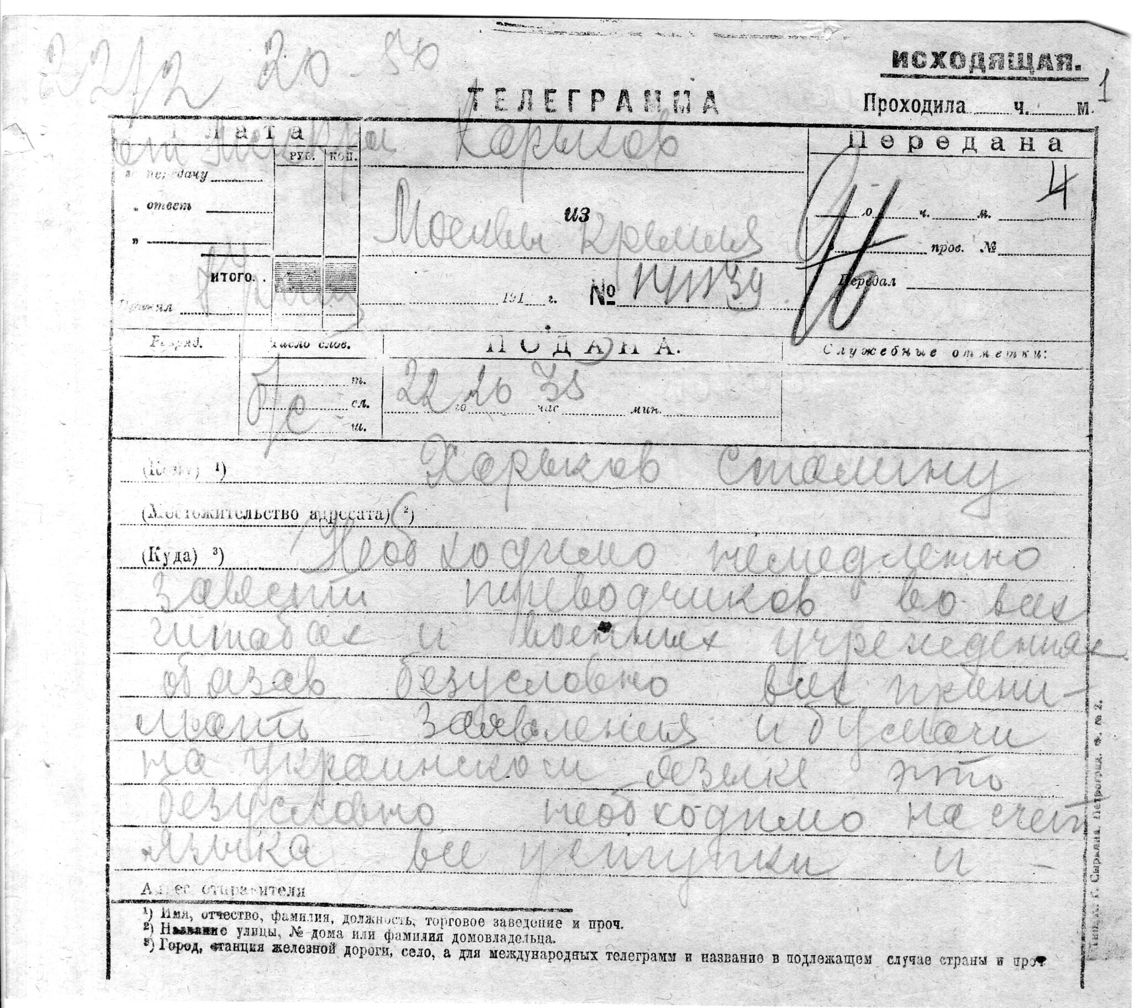 22/2 20-50
ИСХОДЯЩАЯ.
ТЕЛЕГРАММА
Проходила ч. м.
1
Плата
Харьков
Передана
РУБ. КОП.
передачу
4
„ ответь
из
го ч. м.
„
Москвы Кремля
пров. №
ИТОГО.
Передал
Принял
191 г. №
Разряд.
Число слов.
ПОДАНА.
Служебные отметки:
т.
22 го 20 час 35 мин.
сл.
ш.
(Кому) ¹) Харьков Сталину
(Местожительство адресата) ²)
(Куда) ³) Необходимо немедленно
завести переводчиков во всех
штабах и военных учреждениях
обязав безусловно всех прини-
мать заявления и бумаги
на украинском языке это
безусловно необходимо на счет
языка все уступки и -
Адрес отправителя
¹) Имя, отчество, фамилия, должность, торговое заведение и проч.
²) Название улицы, № дома или фамилия домовладельца.
³) Город, станция железной дороги, село, а для международных телеграмм и название в подлежащем случае страны и проч
Петроград. Ф. № 2.